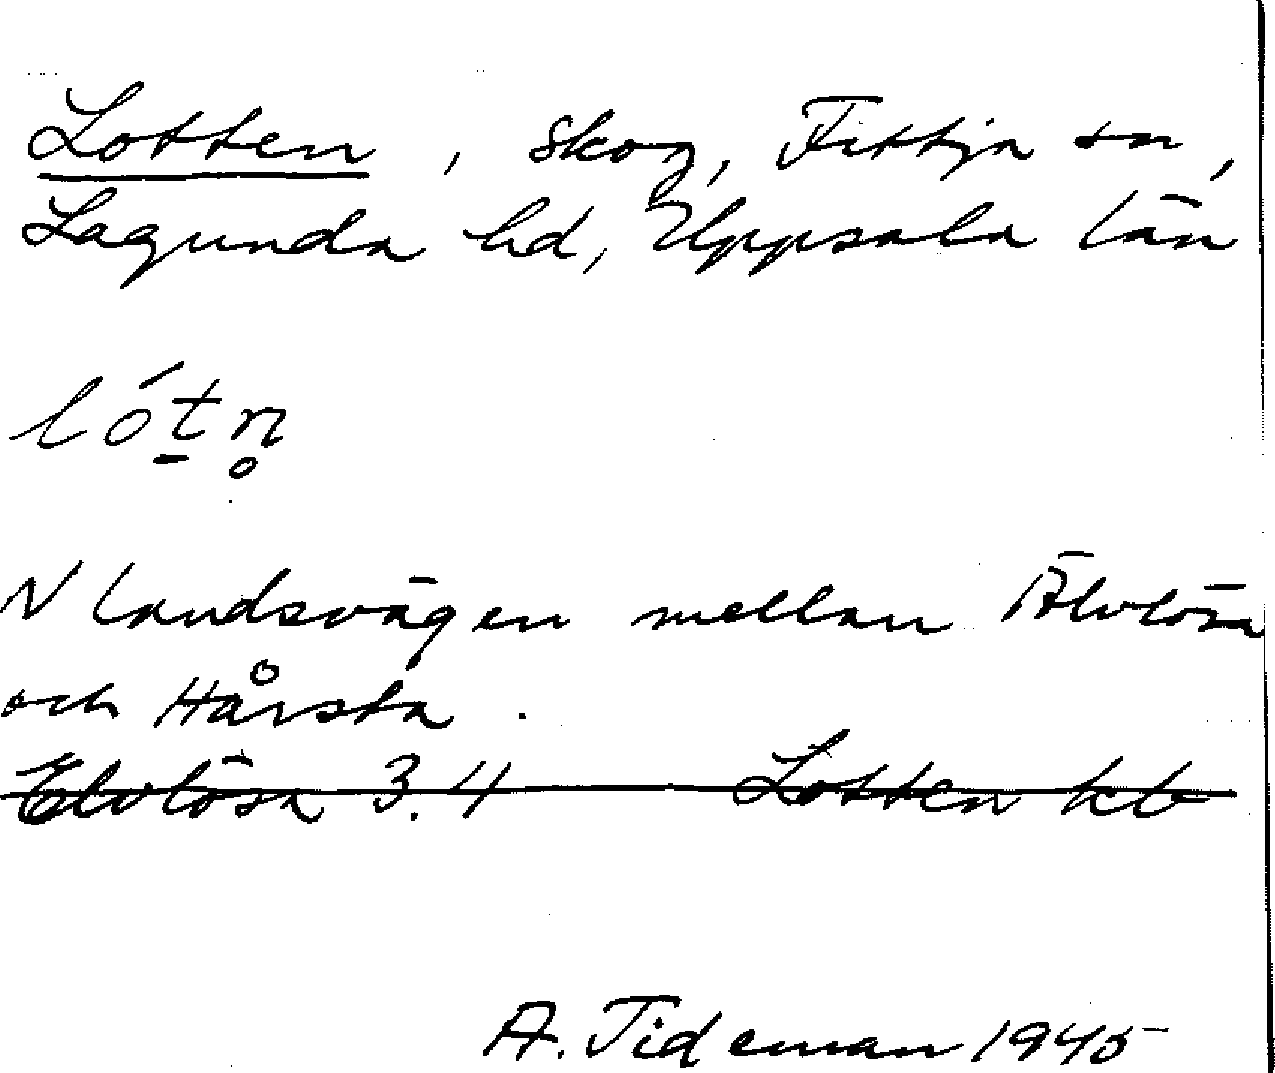 Lotten, skog, Fittja sn,
Lagunda hd, Uppsala län
lót̠n̥
N landsvägen mellan Älvlösa
och Hårsta.
Elvlösa 3.4 Lotten kb
A. Tideman 1945